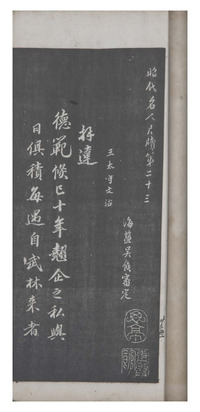 昭代名人尺牘第二十三
海鹽吳修審定
王太守文治
拜違
德範倏已十年翹企之私與
日俱積每遇自武林來者